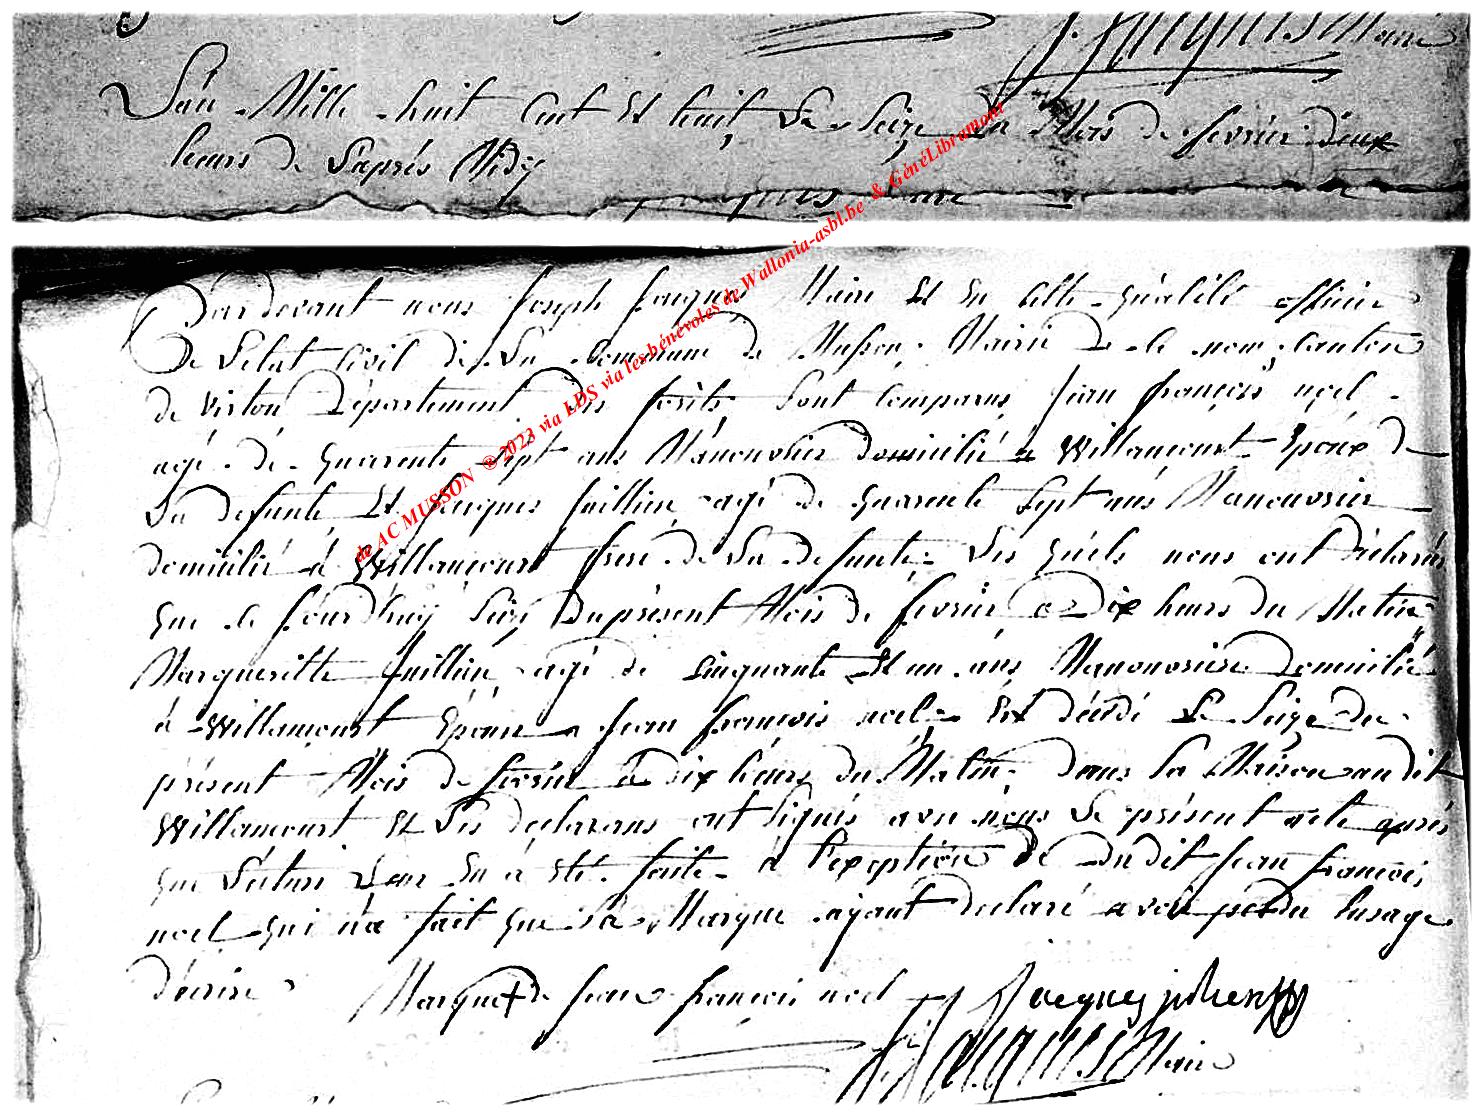 J. Jacques Maire
L'an Mille huit Cent Et huit, Le Seize Du Mois de fevrier deux
heures de L'aprés Midy
Pardevant nous Joseph Jacques Maire Et En Cette qualité officier
De L'etat Civil de La Commune de Musson Mairie De Ce nom, Canton
de Virton Département Des forêts Sont Comparus Jean françois noel
agé de quarente Sept ans Manouvrier domicilié à Willancourt Epoux de
La defunte Et Jacques Juillien agé de quarente Sept ans Manouvrier
domicilié à Willancourt frere de La defunte Les quels nous ont Déclarés
que Ce Jourdhuy Seize Du présent Mois de fevrier a Dix heures du Matin
Margueritte Juillien agé de Cinquante Et un ans Manouvriere Domicilié
à Willancourt Epouse a Jean françois noel Est décédé Le Seize du
présent Mois de fevrier à dix heures du Matin dans Sa Maison audit
Willancourt Et Les declarans ont Signés avec nous Le présent acte aprés
que Lecture Leur En à Eté faite à l'exeption De Dudit Jean françois
noel qui n'a fait que Sa Marque ayant declaré avoir perdu lusage
d'écrire
Marque + de Jean françois noel
Jacques julien
J. Jacques Maire
de AC MUSSON ® 2023 via LDS via les bénévoles de Wallonia-asbl.be & GénéLibramont